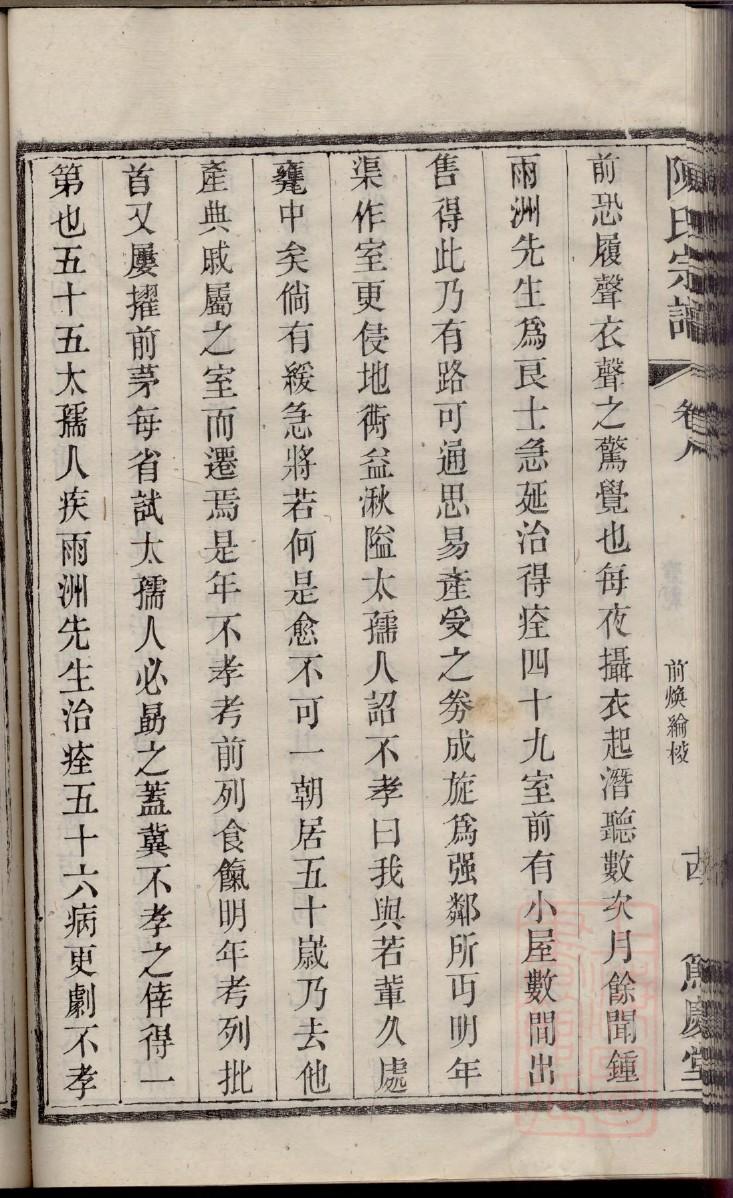 陳氏宗譜
卷八
前煥綸棱
篤慶堂
前恐履聲衣聲之驚覺也每夜攝衣起潛聽數次月餘聞鍾
雨洲先生為良士急延治得痊四十九室前有小屋數間出
售得此乃有路可通思易產受之券成旋為强鄰所丐明年
渠作室更侵地衖益湫隘太孺人詔不孝曰我與若輩久處
甕中矣倘有緩急將若何是愈不可一朝居五十嵗乃去他
產典戚屬之室而遷焉是年不孝考前列食餼明年考列批
首又屢擢前茅每省試太孺人必勗之蓋冀不孝之倖得一
第也五十五太孺人疾雨洲先生治痊五十六病更劇不孝